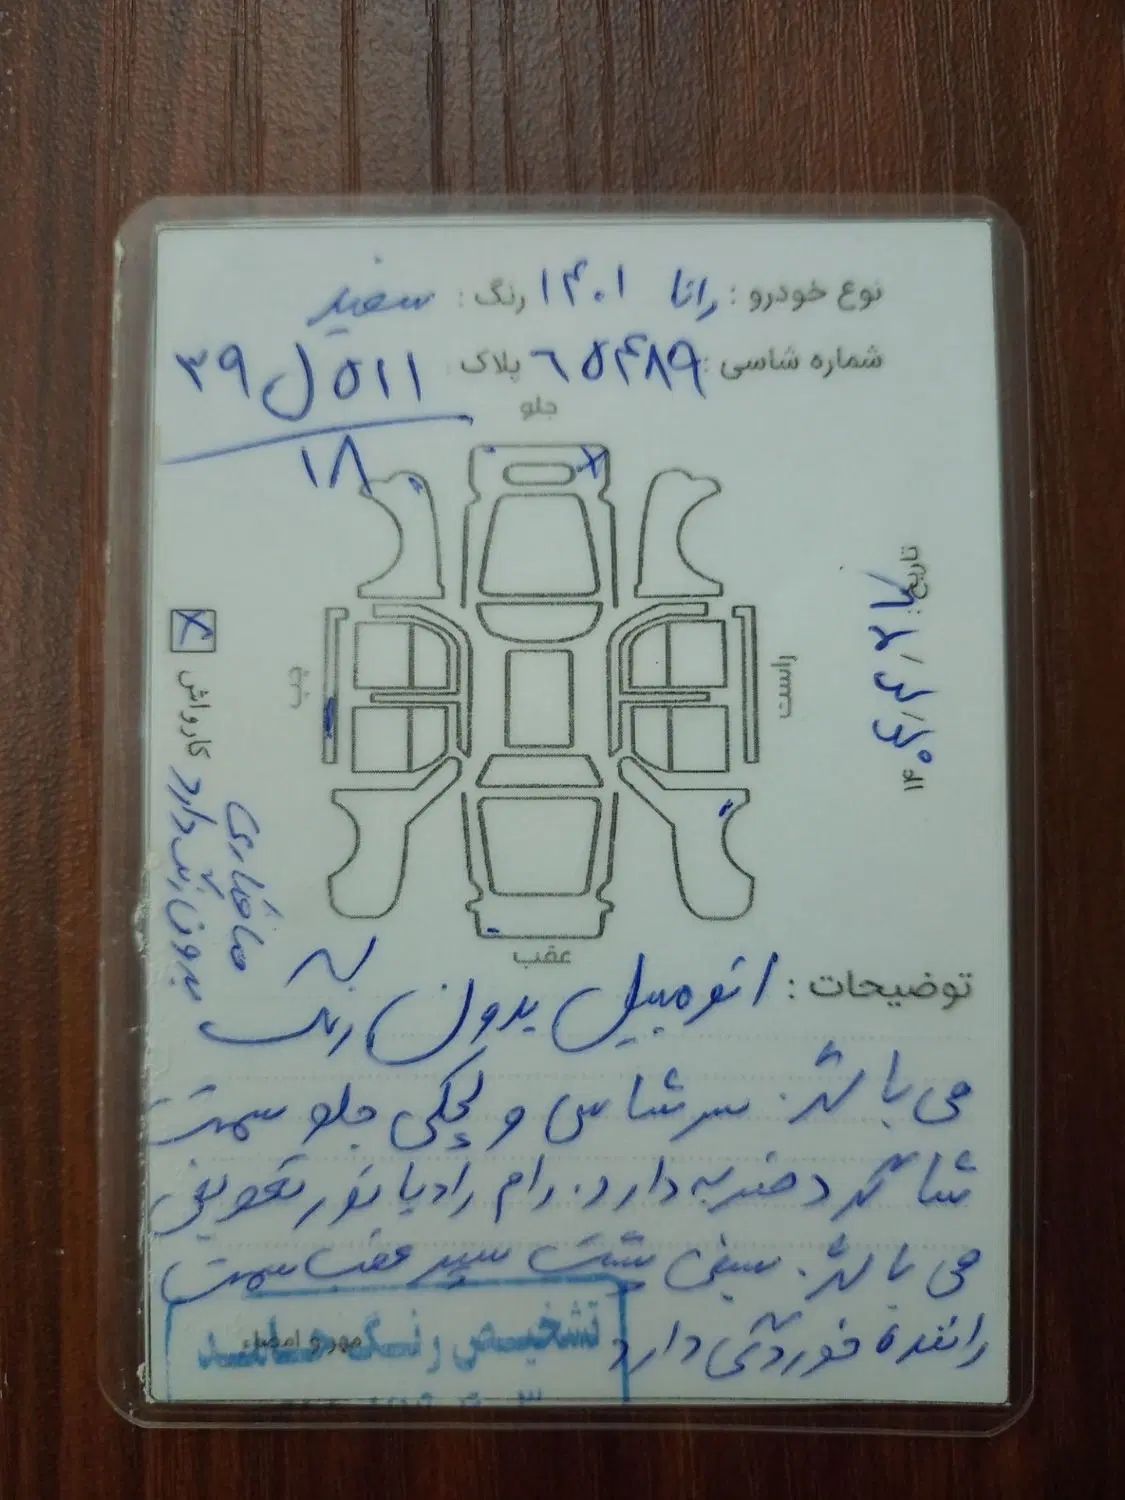 نوع خودرو : رانا ۱۴۰۱ رنگ : سفید
شماره شاسی : ۶۵۴۸۹ پلاک ۵۱۱ ل ۳۹
۱۸
جلو
تاریخ:
۱۴
راست
چپ
کارواش
بدون رنگ دارد
صافکاری
عقب
توضیحات : اتومبیل بدون رنگ
می باشد. سرشاسی و لچکی جلو سمت
شاگرد ضربه دارد. رام رادیاتور تعویض
می باشد. سینی پشت سپر عقب سمت
راننده خوردگی دارد
تشخیص رنگ
مهر و امضاء